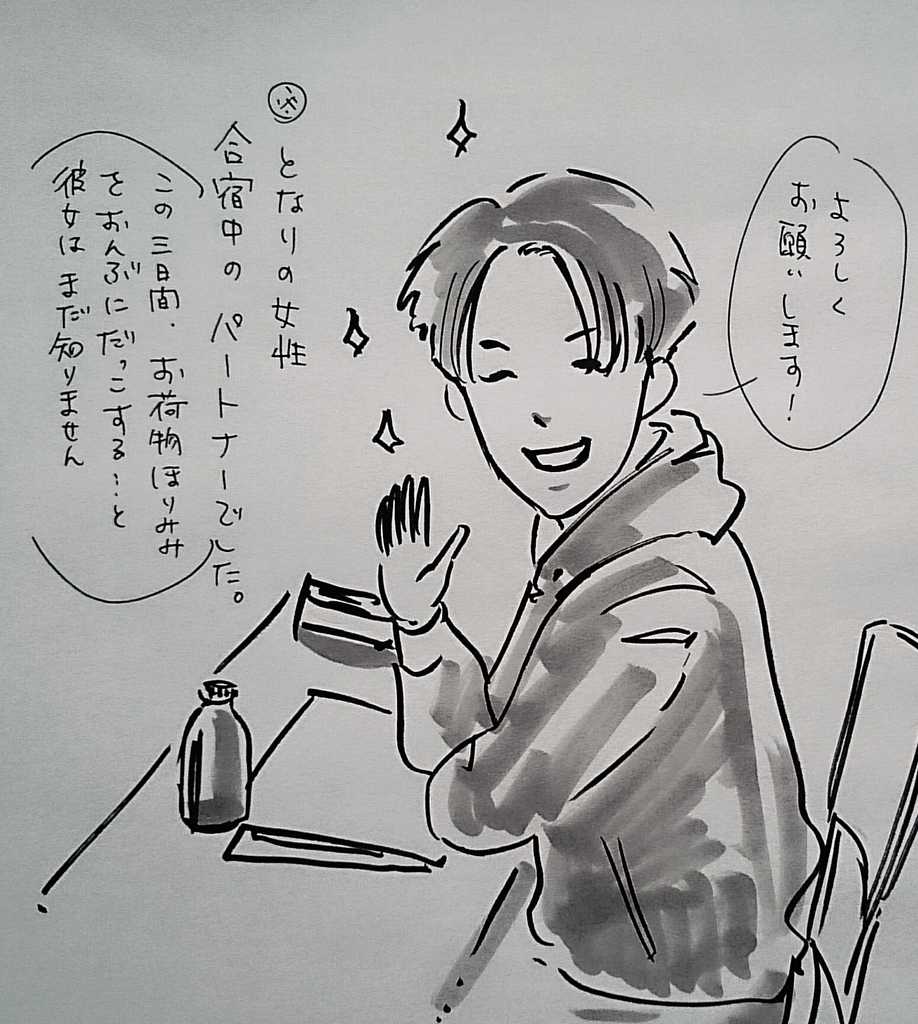 よろしく
お願いします!
※ となりの女性
合宿中の パートナーでした。
この三日間、お荷物ほりみみ
をおんぶにだっこする…と
彼女は まだ知りません